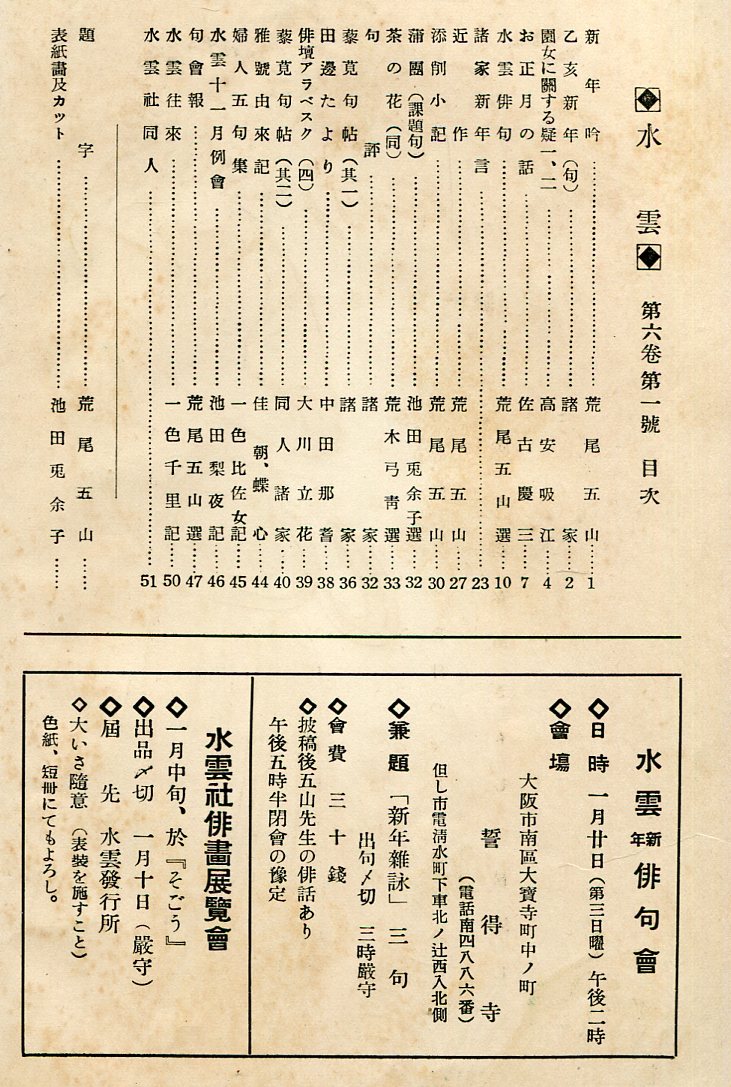 水雲 第六卷第一號 目次
新年吟……荒尾五山……1
乙亥新年(句)……諸家……2
園女に關する疑一、二……高安吸江……4
お正月の話……佐古慶三……7
水雲俳句……荒尾五山選……10
諸家新年言……23
近作……荒尾五山……27
添削小記……荒尾五山……30
蒲團(課題句)……池田兎余子選……32
茶の花(同)……荒木弓靑選……33
句評……諸家……32
藜莧句帖(其一)……諸家……36
田邊たより……中田那耆……38
俳壇アラベスク(四)……大川立花……39
藜莧句帖(其二)……同人諸家……40
雅號由來記……佳朝、蝶心……44
婦人五句集……一色比佐女記……45
水雲十一月例會……池田梨夜記……46
句會報……荒尾五山選……47
水雲往來……一色千里記……50
水雲社同人……51
題字……荒尾五山……
表紙畫及カット……池田兎余子……
水雲新年俳句會
◇日時 一月廿日(第三日曜)午後二時
◇會場
大阪市南區大寶寺町中ノ町
誓得寺
(電話南四八八六番)
但し市電淸水町下車北ノ辻西入北側
◇兼題「新年雜詠」三句
出句〆切 三時嚴守
◇會費 三十錢
◇披稿後五山先生の俳話あり
午後五時半閉會の豫定
水雲社俳畫展覽會
◇一月中旬、於『そごう』
◇出品〆切 一月十日(嚴守)
◇屆先 水雲發行所
◇大いさ隨意(表裝を施すこと)
色紙、短冊にてもよろし。